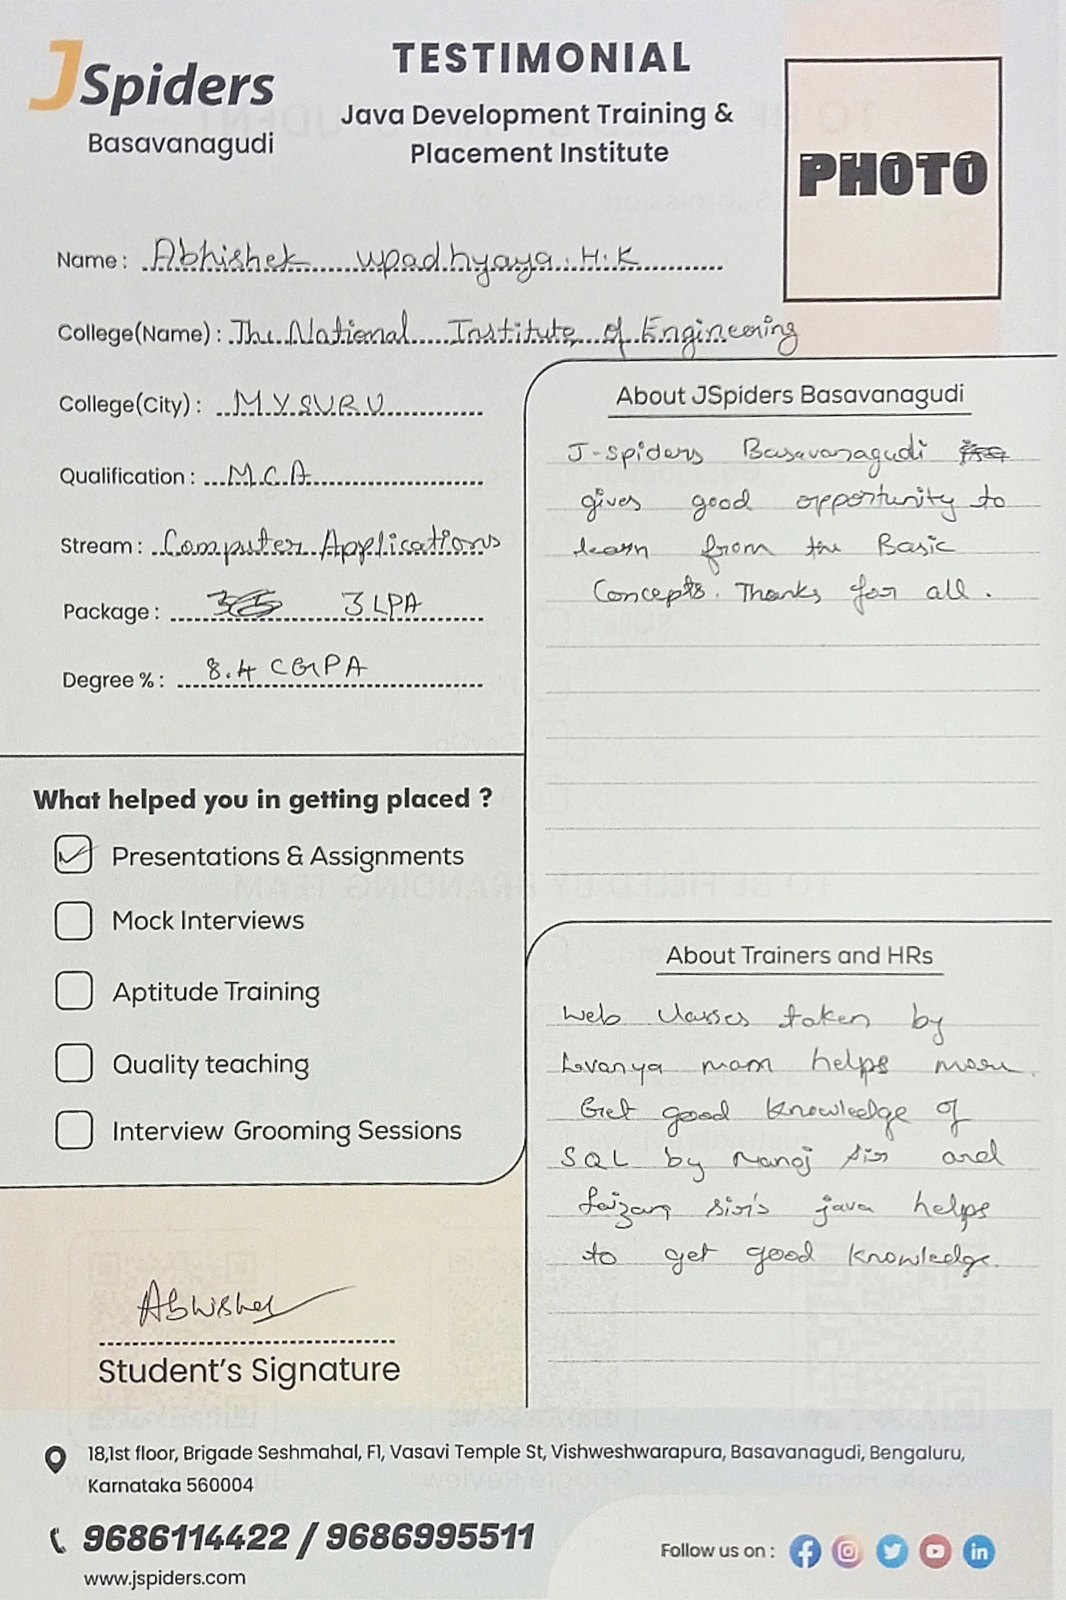 JSpiders
Basavanagudi
TESTIMONIAL
Java Development Training &
Placement Institute
PHOTO
Name : Abhishek upadhyaya . H.K
College(Name) : The National Institute of Engineering
College(City) : MYSURU
Qualification : M.C.A
Stream : Computer Applications
Package : 3 LPA
Degree % : 8.4 CGPA
What helped you in getting placed ?
Presentations & Assignments
Mock Interviews
Aptitude Training
Quality teaching
Interview Grooming Sessions
Abhishek
Student's Signature
About JSpiders Basavanagudi
J-spiders Basavanagudi
gives good opportunity to
learn from the Basic
Concepts. Thanks for all.
About Trainers and HRs
Web classes taken by
Lavanya mam helps more.
Get good knowledge of
SQL by Manoj sir and
faizan sir's java helps
to get good knowledge.
18,1st floor, Brigade Seshmahal, F1, Vasavi Temple St, Vishweshwarapura, Basavanagudi, Bengaluru,
Karnataka 560004
9686114422 / 9686995511
www.jspiders.com
Follow us on :